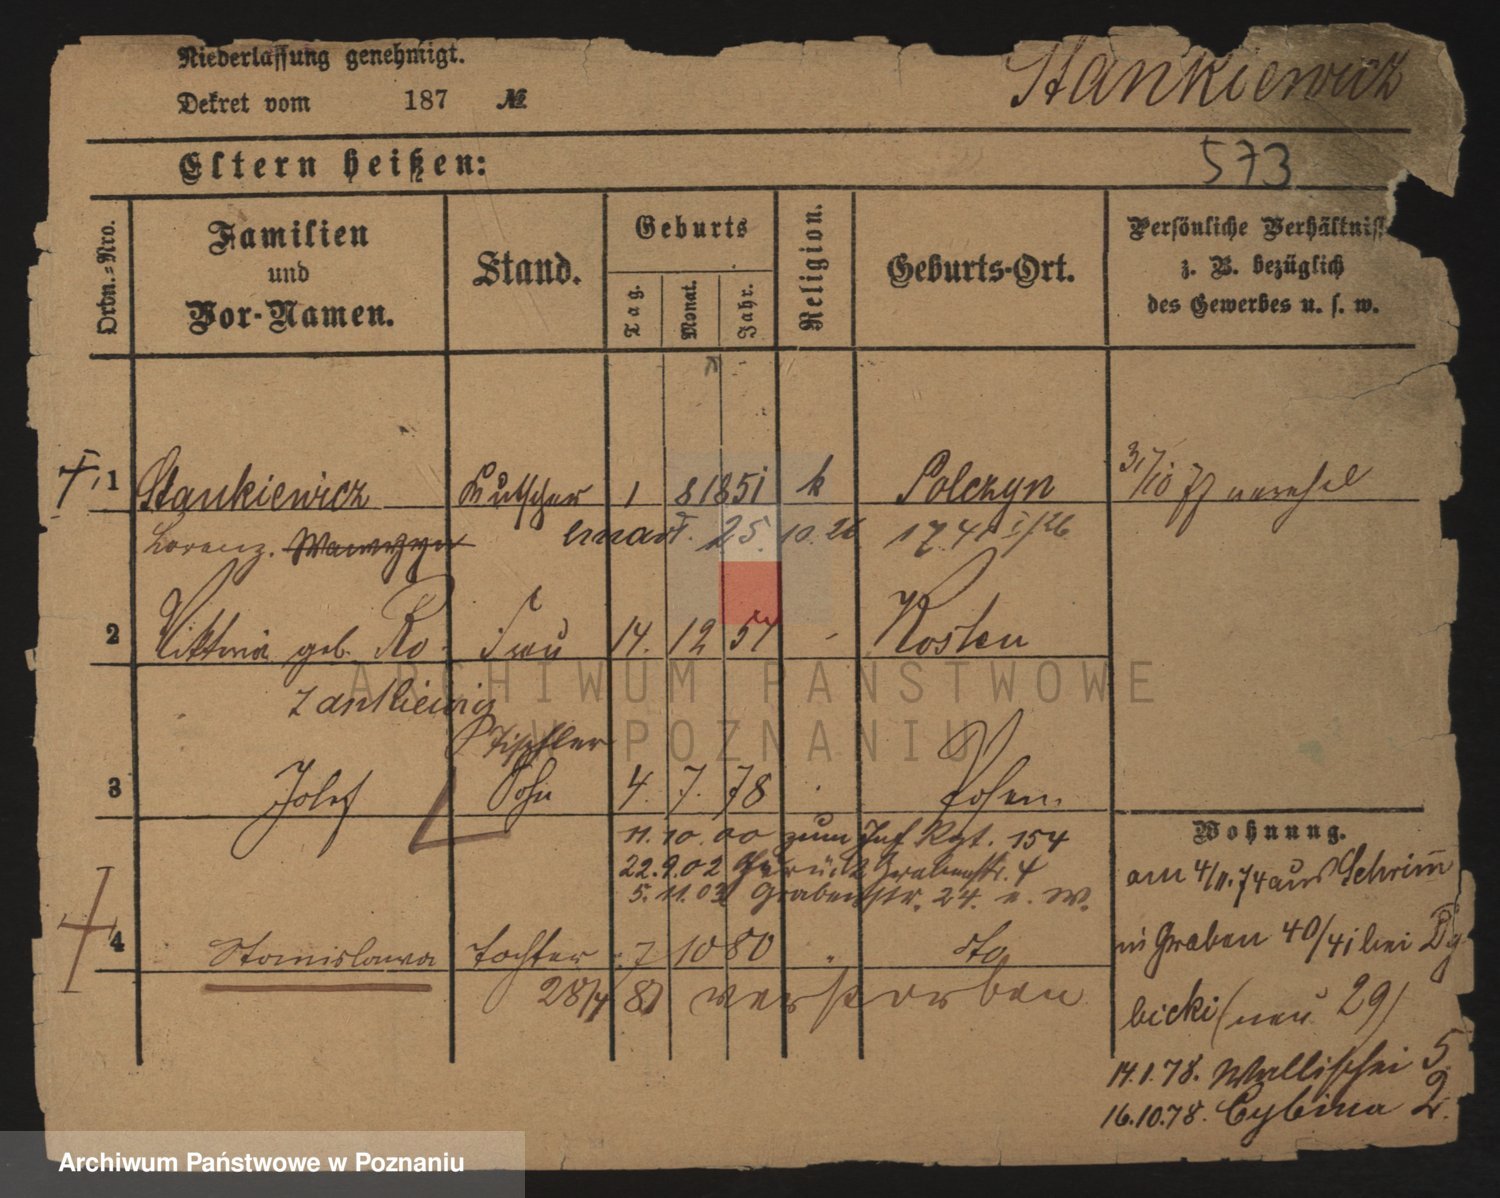 Niederlassung genehmigt.
Dekret vom 187 №
Stankiewicz
573
Eltern heißen:
Ordn.=Nro.
Familien
und
Vor-Namen.
Stand.
Geburts
Tag.
Monat.
Jahr.
Religion.
Geburts-Ort.
Persönliche Verhältniss
z. B. bezüglich
des Gewerbes u. s. w.
1 Stankiewicz Kutscher 1 8 1851 k Polczyn 31/10 77
Lorenz. Wawrzyn 25. 10. 26 17.41 I/26
2 Viktoria geb. Ro- Frau 14. 12 57 Kosten
zankiewicz
Tischler
3 Josef Sohn 4. 7. 78 Posen.
11. 10. 00 zum Inf Rgt. 154
22.9.02 Zurück Grabenstr. 4
5. 11. 03 Grabenstr. 24. e. W.
4 Stanislawa Tochter 7 10 80 dto
28/7 81 verstorben
Wohnung.
am 4/11. 74 aus Schrimm
in Graben 40/41 bei Dy
bicki (neu 29)
14.1.78. Wallischei 5.
16.10.78. Cybina 2.
ARCHIWUM PAŃSTWOWE
W POZNANIU
Archiwum Państwowe w Poznaniu